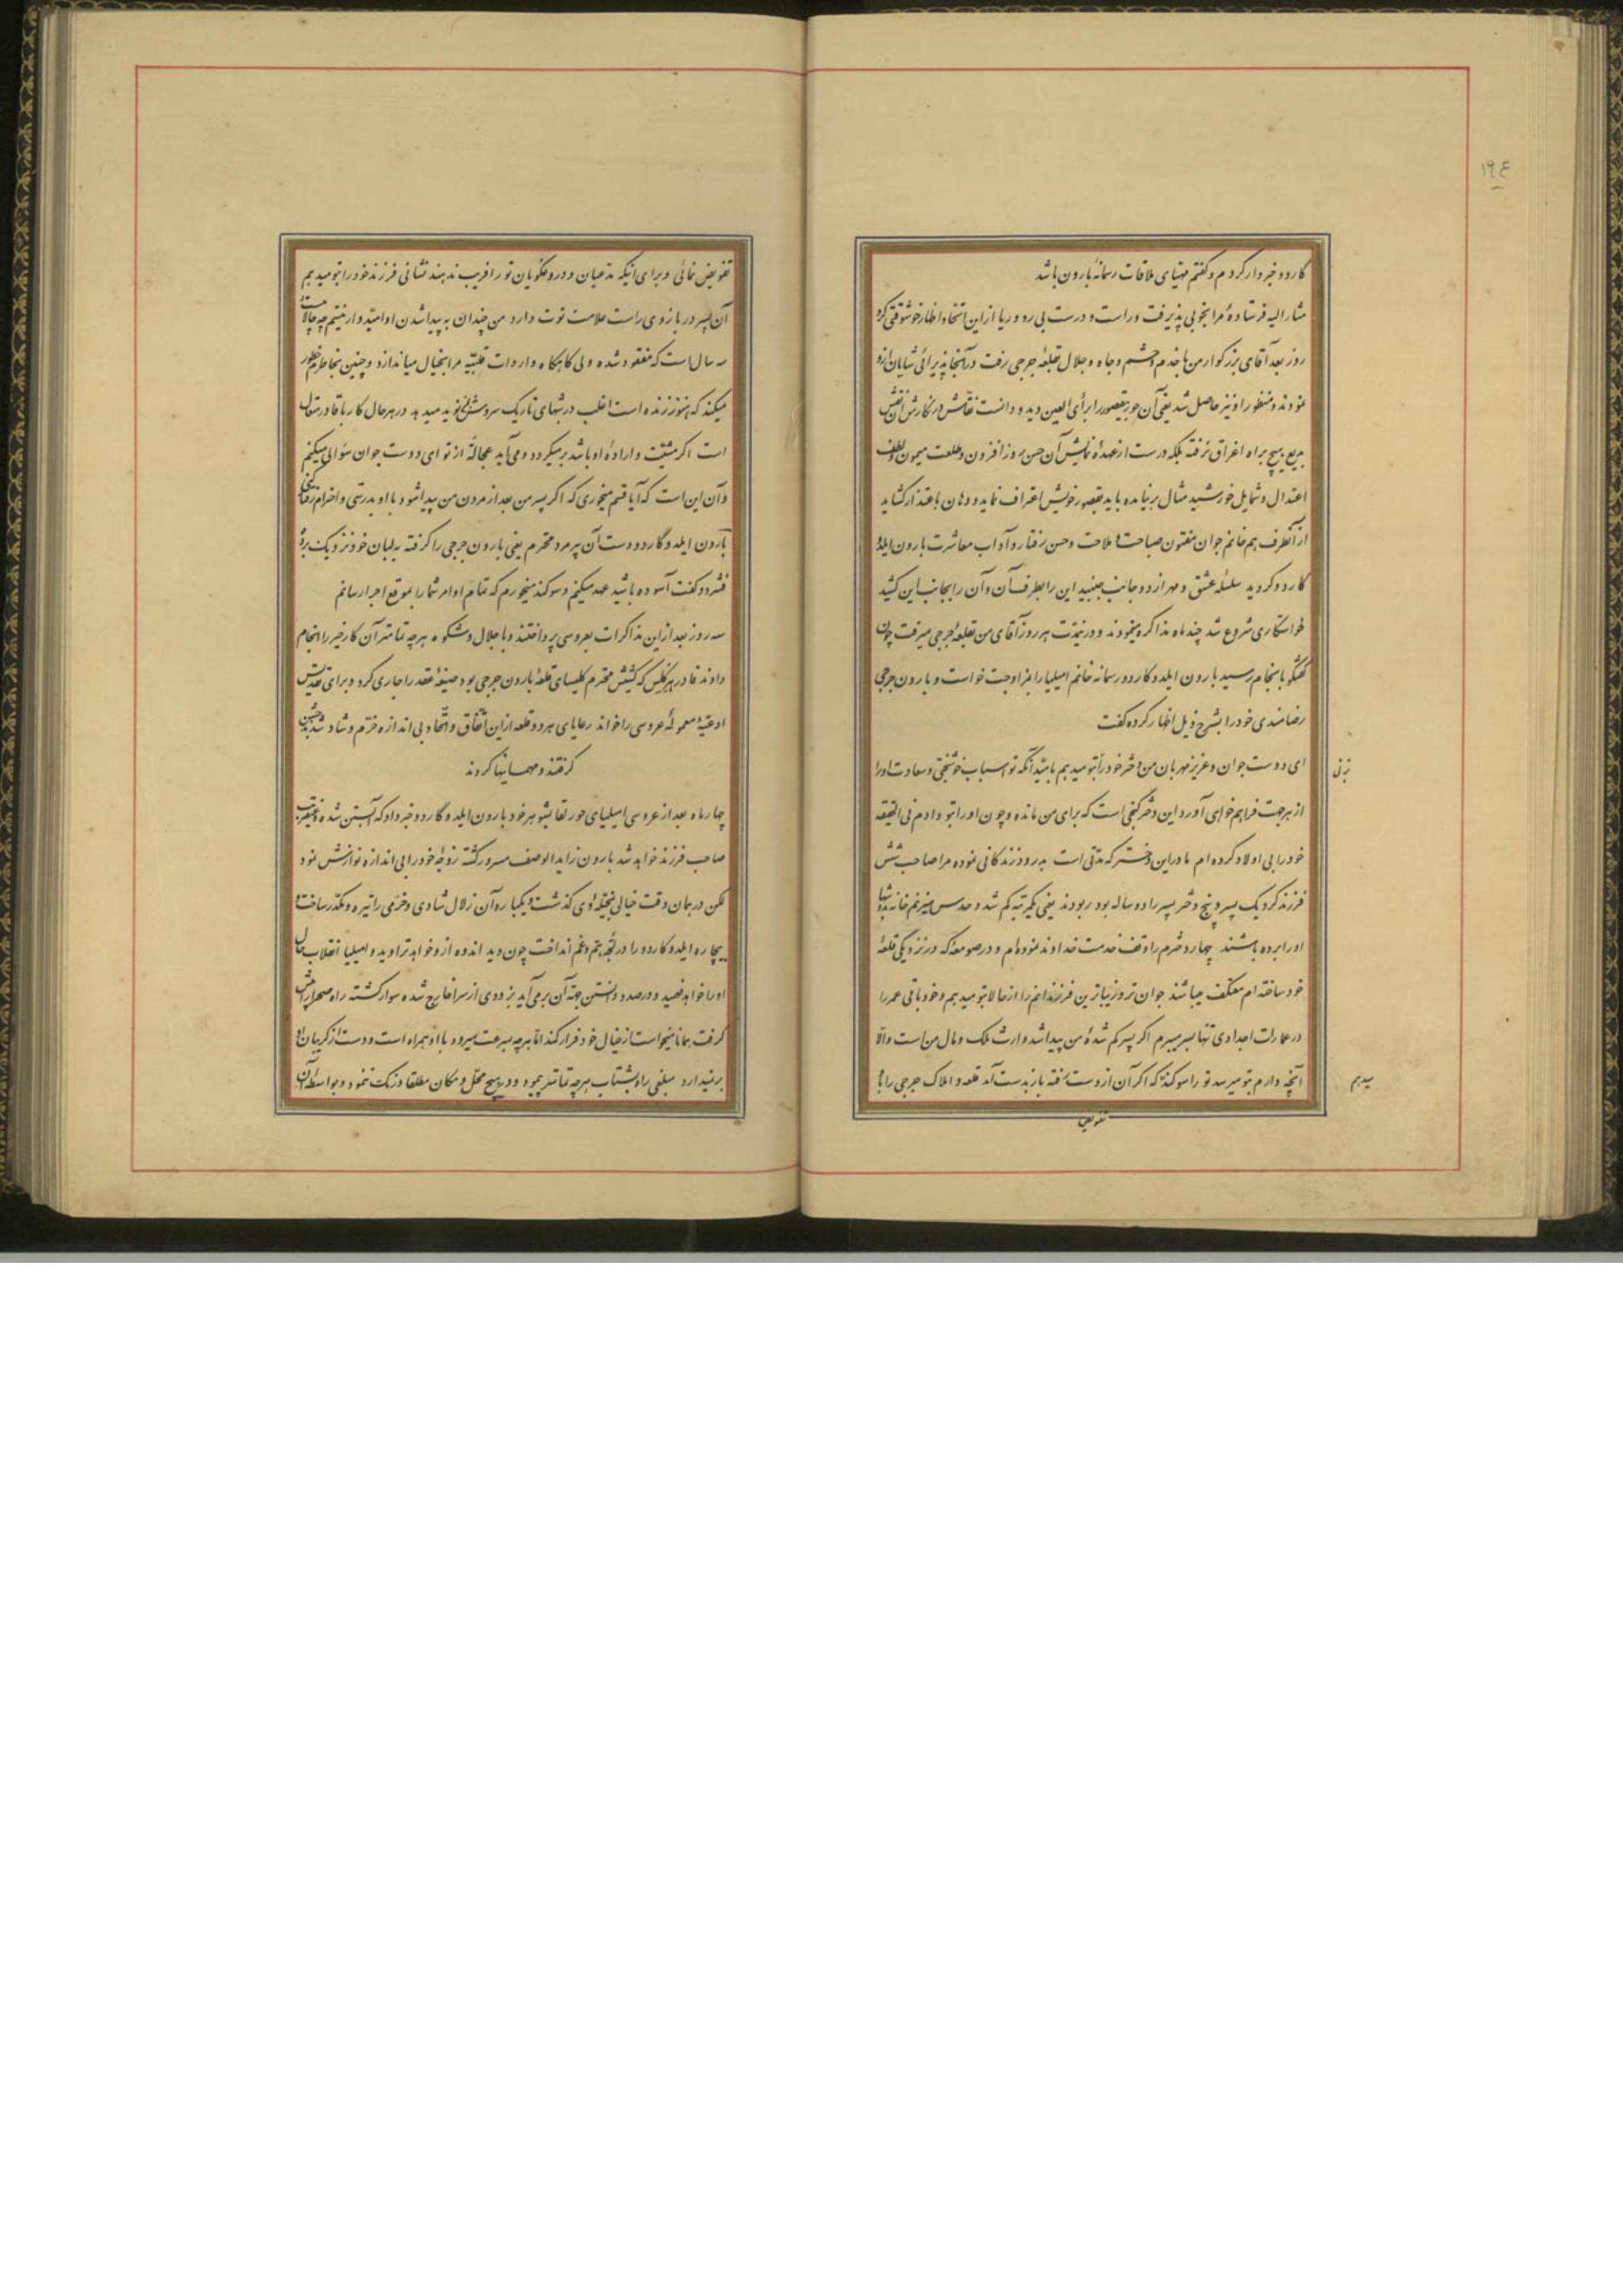 ۱۹٤
گاردو خبردار کردم و گفتم مهیای ملاقات رسمانهٔ بارون باشد
مشارالیه فرستادهٔ مرا بخوبی پذیرفت و راست و درست بی رو و ریا از این اتحاد اظهار خوشوقتی کرد
روز بعد آقای بزرگوار من با خدم و حشم و جاه و جلال بقلعهٔ جرجی رفت در آنجا پذیرائی شایان ازو
نمودند و منظور او نیز حاصل شد یعنی آن حور بیقصور را برأی العین دید و دانست نقاش در نگارش آن نقش
بدیع هیچ براه اغراق نرفته بلکه درست از عهدهٔ نمایش آن حسن روز افزون و طلعت میمون و لطف
اعتدال و شمایل خورشید مثال بر نیامده باید بقصور خویش اعتراف نماید و دهان باعتذار گشاید
از آنطرف هم خانم جوان مفتون صباحت و ملاحت و حسن رفتار و آداب معاشرت بارون ایلد و
گاردو گردید سلسلهٔ عشق و مهر از دو جانب جنبید این را بطرف آن و آن را بجانب این کشید
خواستگاری شروع شد چند ماه مذاکره مینمودند و در نمدت هر روز آقای من بقلعهٔ جرجی میرفت چون
گفتگو بانجام رسید بارون ایلد و گاردو رسمانه خانم امیلیا را بمزاوجت خواست و بارون جرجی
رضامندی خود را بشرح ذیل اظهار کرده گفت
ای دوست جوان و عزیز مهربان من دختر خود را بتو میدهم بامید آنکه تو اسباب خوشبختی و سعادت او را
بزنی
از هر جهت فراهم خواهی آورد این دختر کفی است که برای من مانده و چون او را بتو دادم فی الحقیقه
خود را بی اولاد کرده ام مادر این دختر که مدتی است بدرود زندگانی نموده مرا صاحب شش
فرزند کرد یک پسر و پنج دختر پسر را دو ساله بود ربودند یعنی یکمرتبه گم شد و حدس میزنم خانه بدوشها
او را برده باشند چهار دخترم را وقف خدمت خداوند نموده ام و در صومعه که در نزدیکی قلعهٔ
خود ساخته ام معتکف میباشند جوان تر و زیباترین فرزندانم را از حالا بتو میدهم و خود باقی عمر را
در عمارات اجدادی تنها بسر میبرم اگر پسر گم شدهٔ من پیدا شد وارث ملک و مال من است والا
آنچه دارم بتو میرسد تو را سوگند که اگر آن از دست رفته باز بدست آمد قلعه و املاک جرجی را باو
میدهم
تفویض
تفویض نمائی و برای اینکه مدعیان و دروغگویان تو را فریب ندهند نشانی فرزند خود را بتو میدهم
آن پسر در بازوی راست علامت توت دارد من چندان به پیدا شدن او امیدوار نیستم چه حالا بیست
سال است که مفقود شده ولی گاهگاه واردات قلبیّه مرا بخیال میاندازد و چنین بخاطرم خطور
میکند که هنوز زنده است اغلب در شبهای تاریک سروش نوید میدهد در هر حال کار با قادر متعال
است اگر مشیّت و ارادهٔ او باشد بر میگردد و می آید عجالةً از تو ای دوست جوان سؤالی میکنم
و آن این است که آیا قسم میخوری که اگر پسر من بعد از مردن من پیدا شود با او بدرستی و احترام رفتار کنی
بارون ایلد و گاردو دست آن پیر مرد محترم یعنی بارون جرجی را گرفته به لبان خود نزدیک برد و
فشرد و گفت آسوده باشید عهد میکنم و سوگند میخورم که تمام اوامر شما را بموقع اجرا رسانم
سه روز بعد از این مذاکرات بعروسی پرداختند و با جلال و شکوه هر چه تمامتر آن کار خیر را انجام
دادند فادر هرکلیس که کشیش محترم کلیسای قلعهٔ بارون جرجی بود صیغهٔ عقد را جاری کرد و برای تقدیس
ادعیهٔ معموله عروسی را خواند رعایای هر دو قلعه از این اتفاق و اتحاد بی اندازه خرّم و شاد شدند جشن
گرفتند و مهمانیها کردند
چهار ماه بعد از عروسی امیلیای حور لقا بشوهر خود بارون ایلد و گاردو خبر داد که آبستن شده و عنقریب
صاحب فرزند خواهد شد بارون زاید الوصف مسرور گشته زوجهٔ خود را بی اندازه نوازش نمود
لکن در همان وقت خیالی بمخیلهٔ وی گذشت و یکباره آن زلال شادی و خرّمی را تیره و مکدر ساخت و
بیچاره ایلد و گاردو را در لجهٔ هم و غم انداخت چون دید اندوه از و خواهد تراوید و امیلیا انقلاب حال
او را خواهد فهمید و درصدد دانستن جهة آن بر می آید بزودی از سرا خارج شده سوار گشته راه صحرا پیش
گرفت همانا میخواست از خیال خود فرار کند اما هر چه بسرعت میرود با او همراه است و دست از گریبان او
بر نمیدارد مبلغی راه بشتاب هر چه تمامتر پیمود و در هیچ محل و مکان مطلقا درنگ ننمود و بواسطهٔ آن